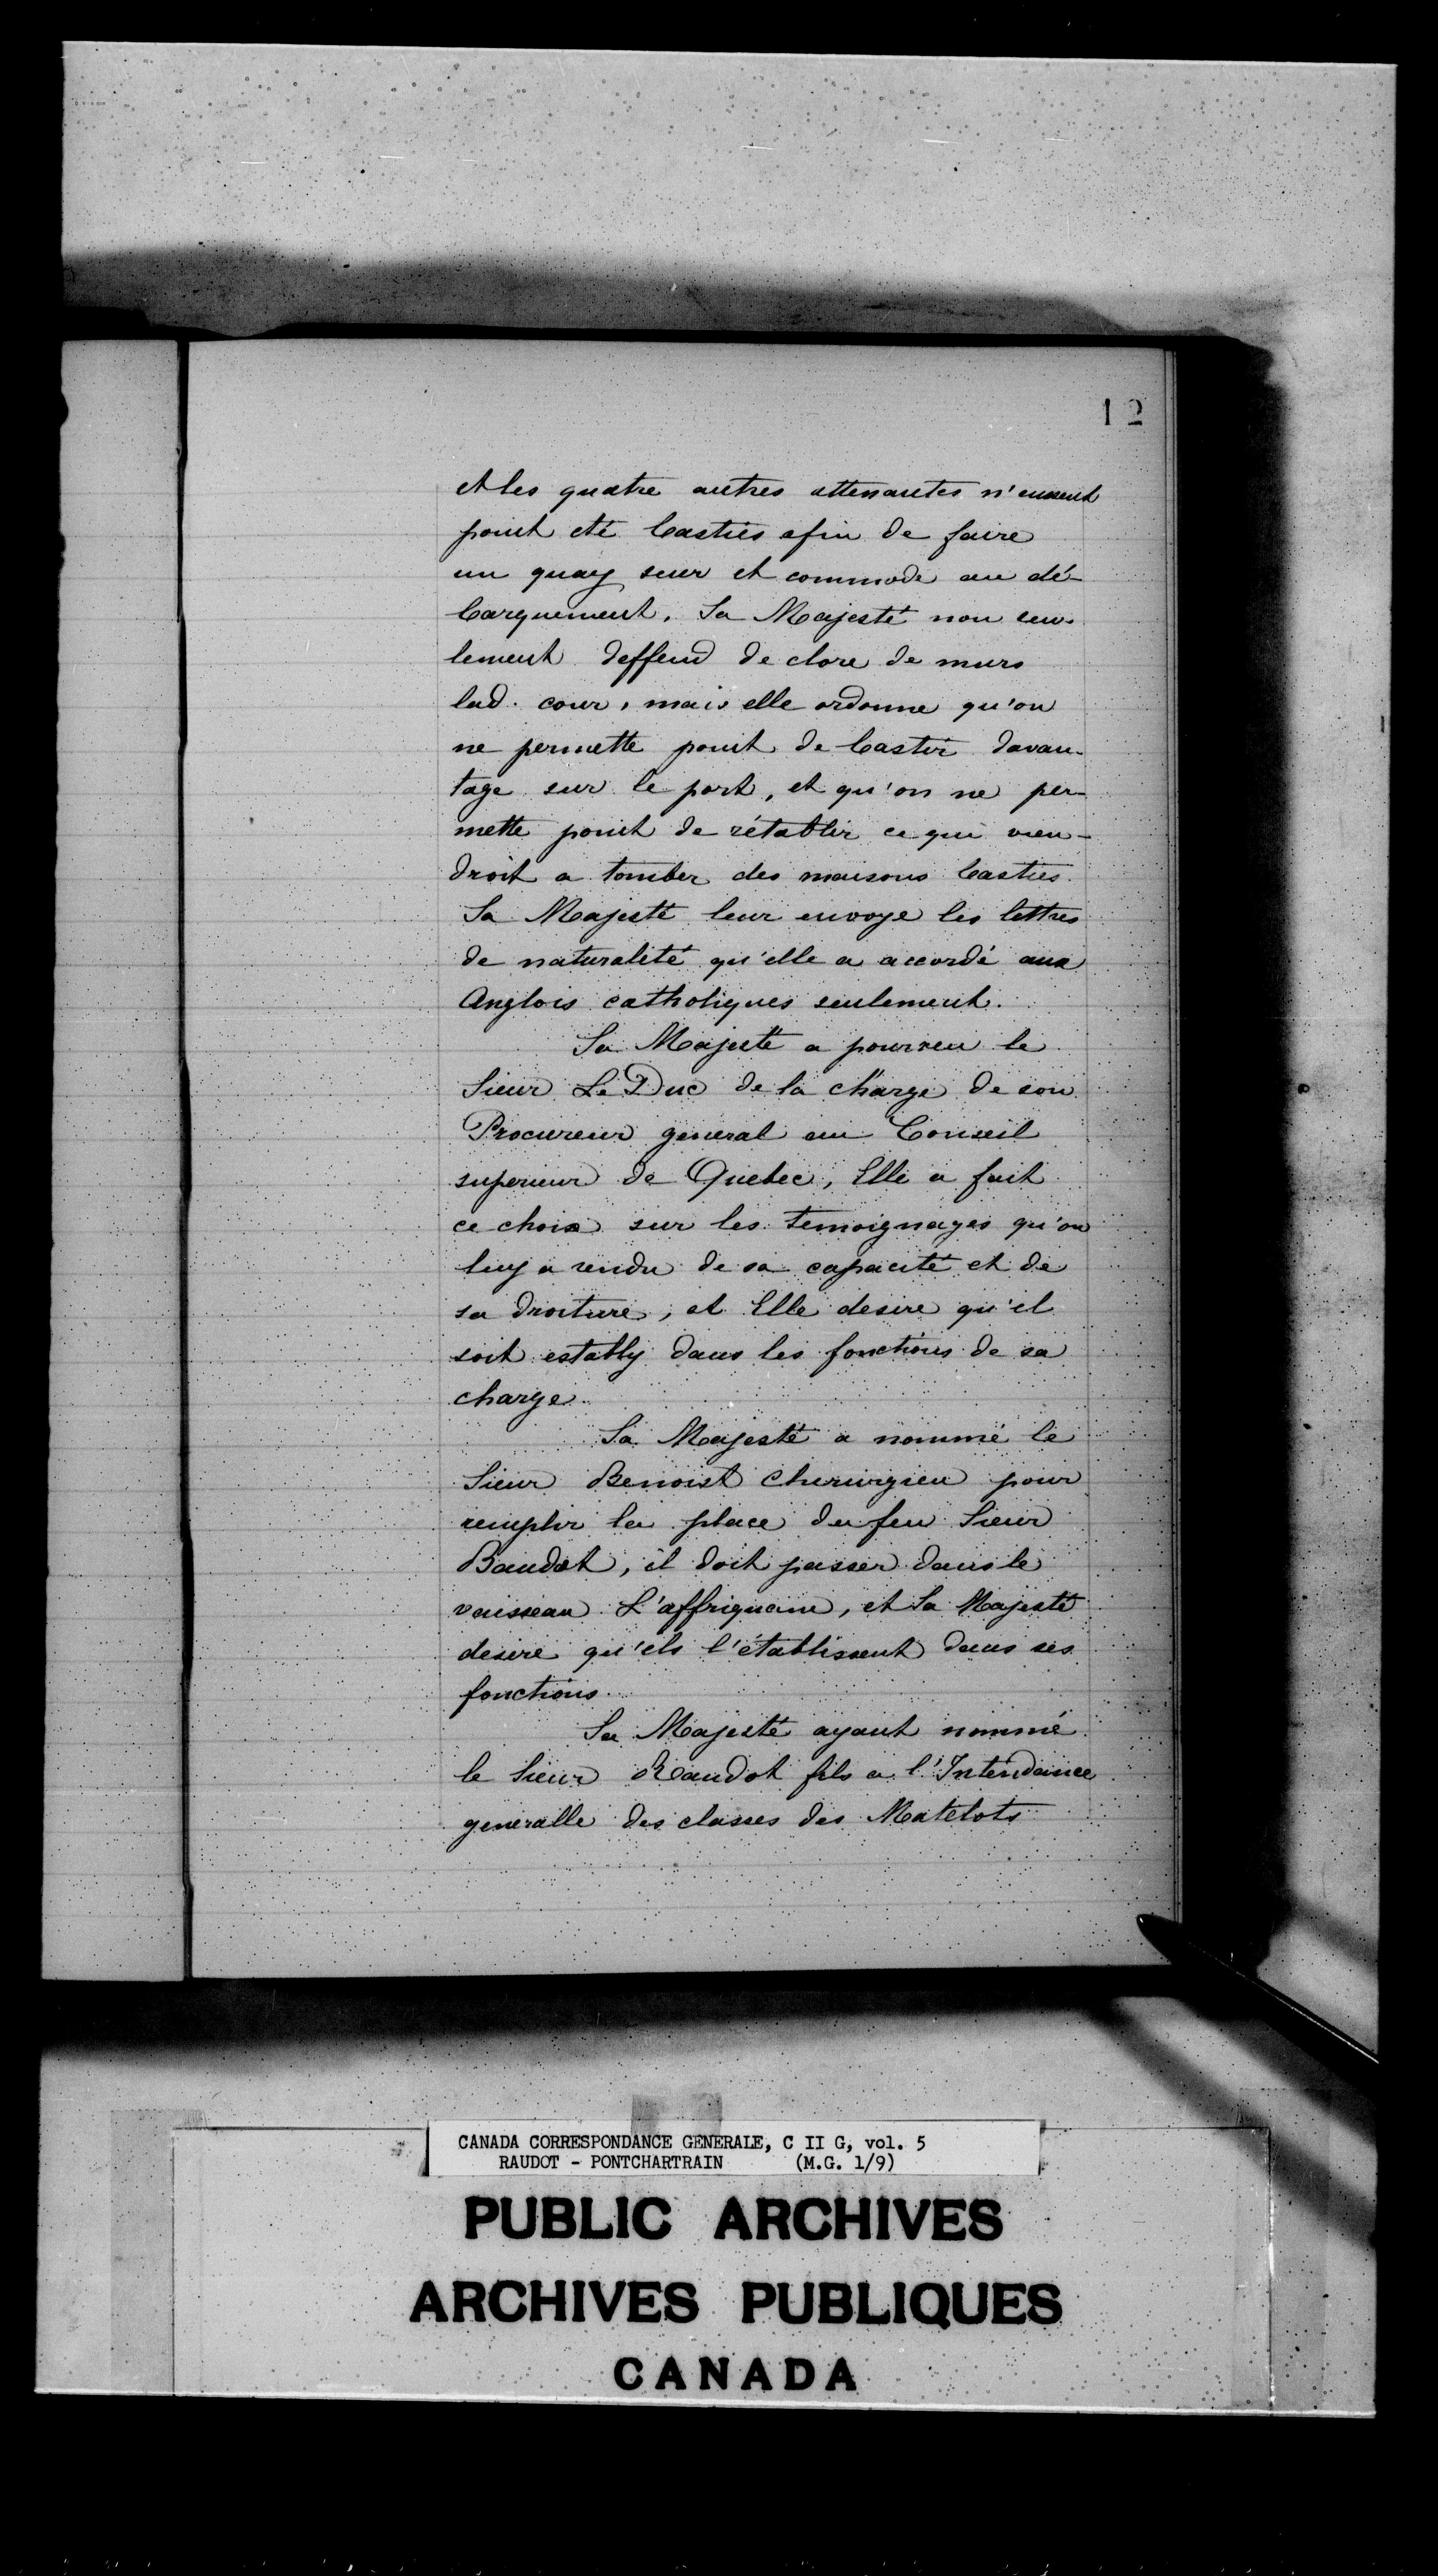 12
et les quatre autres attenantes n'eussent
point eté basties afin de faire
un quay seur et commode au dé-
barquement. Sa Majesté non seu-
lement deffend de clore de murs
lad. cour, mais elle ordonne qu'on
ne permette point de bastir davan-
tage sur le port, et qu'on ne per-
mette point de rétablir ce qui vien-
droit a tomber des maisons basties.
Sa Majesté leur envoye les lettres
de naturalité qu'elle a accordé aux
Anglois catholiques seulement.
Sa Majesté a pourveu le
Sieur Le Duc de la charge de son
Procureur general au Conseil
superieur de Quebec, Elle a fait
ce choix sur les temoignages qu'on
luy a rendu de sa capacité et de
sa droiture, et Elle desire qu'il
soit estably dans les fonctions de sa
charge.
Sa Majesté a nommé le
Sieur Benoist chirurgien pour
remplir la place du feu Sieur
Baudot, il doit passer dans le
vaisseau L'affriquain, et Sa Majesté
desire qu'ils l'établissent dans ses
fonctions.
Sa Majesté ayant nommé
le Sieur Raudot fils a l'Intendance
generalle des classes des Matelots
CANADA CORRESPONDANCE GENERALE, C II G, vol. 5
RAUDOT - PONTCHARTRAIN (M.G. 1/9)
PUBLIC ARCHIVES
ARCHIVES PUBLIQUES
CANADA